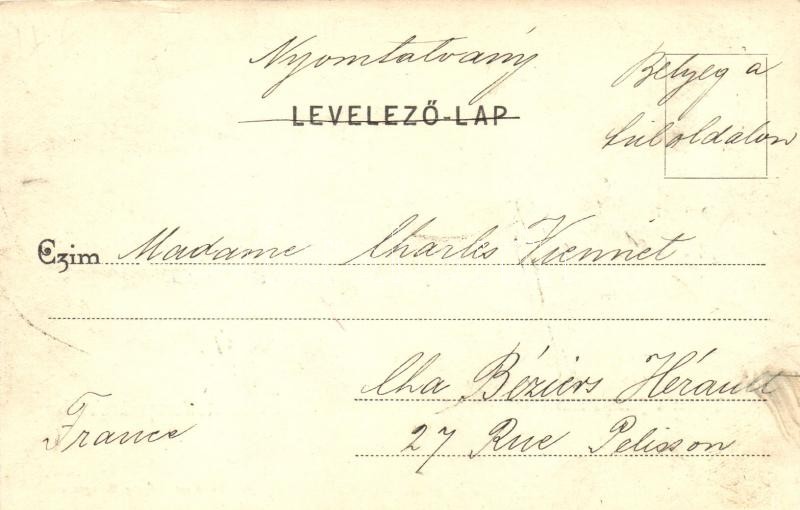 Nyomtatvány
Bélyeg a
túloldalon
LEVELEZŐ-LAP
Czim Madame Charles Viennet
Béziers Hérault
France
27 Rue Pelisson